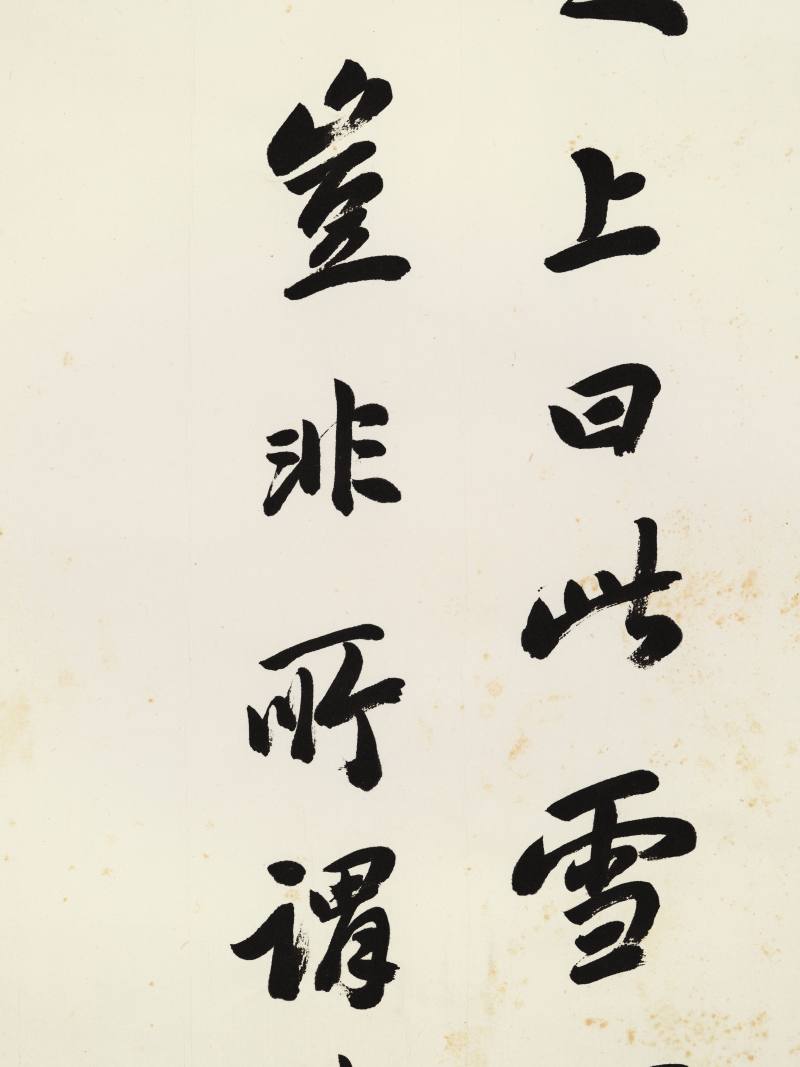 上曰此雪
豈非所謂